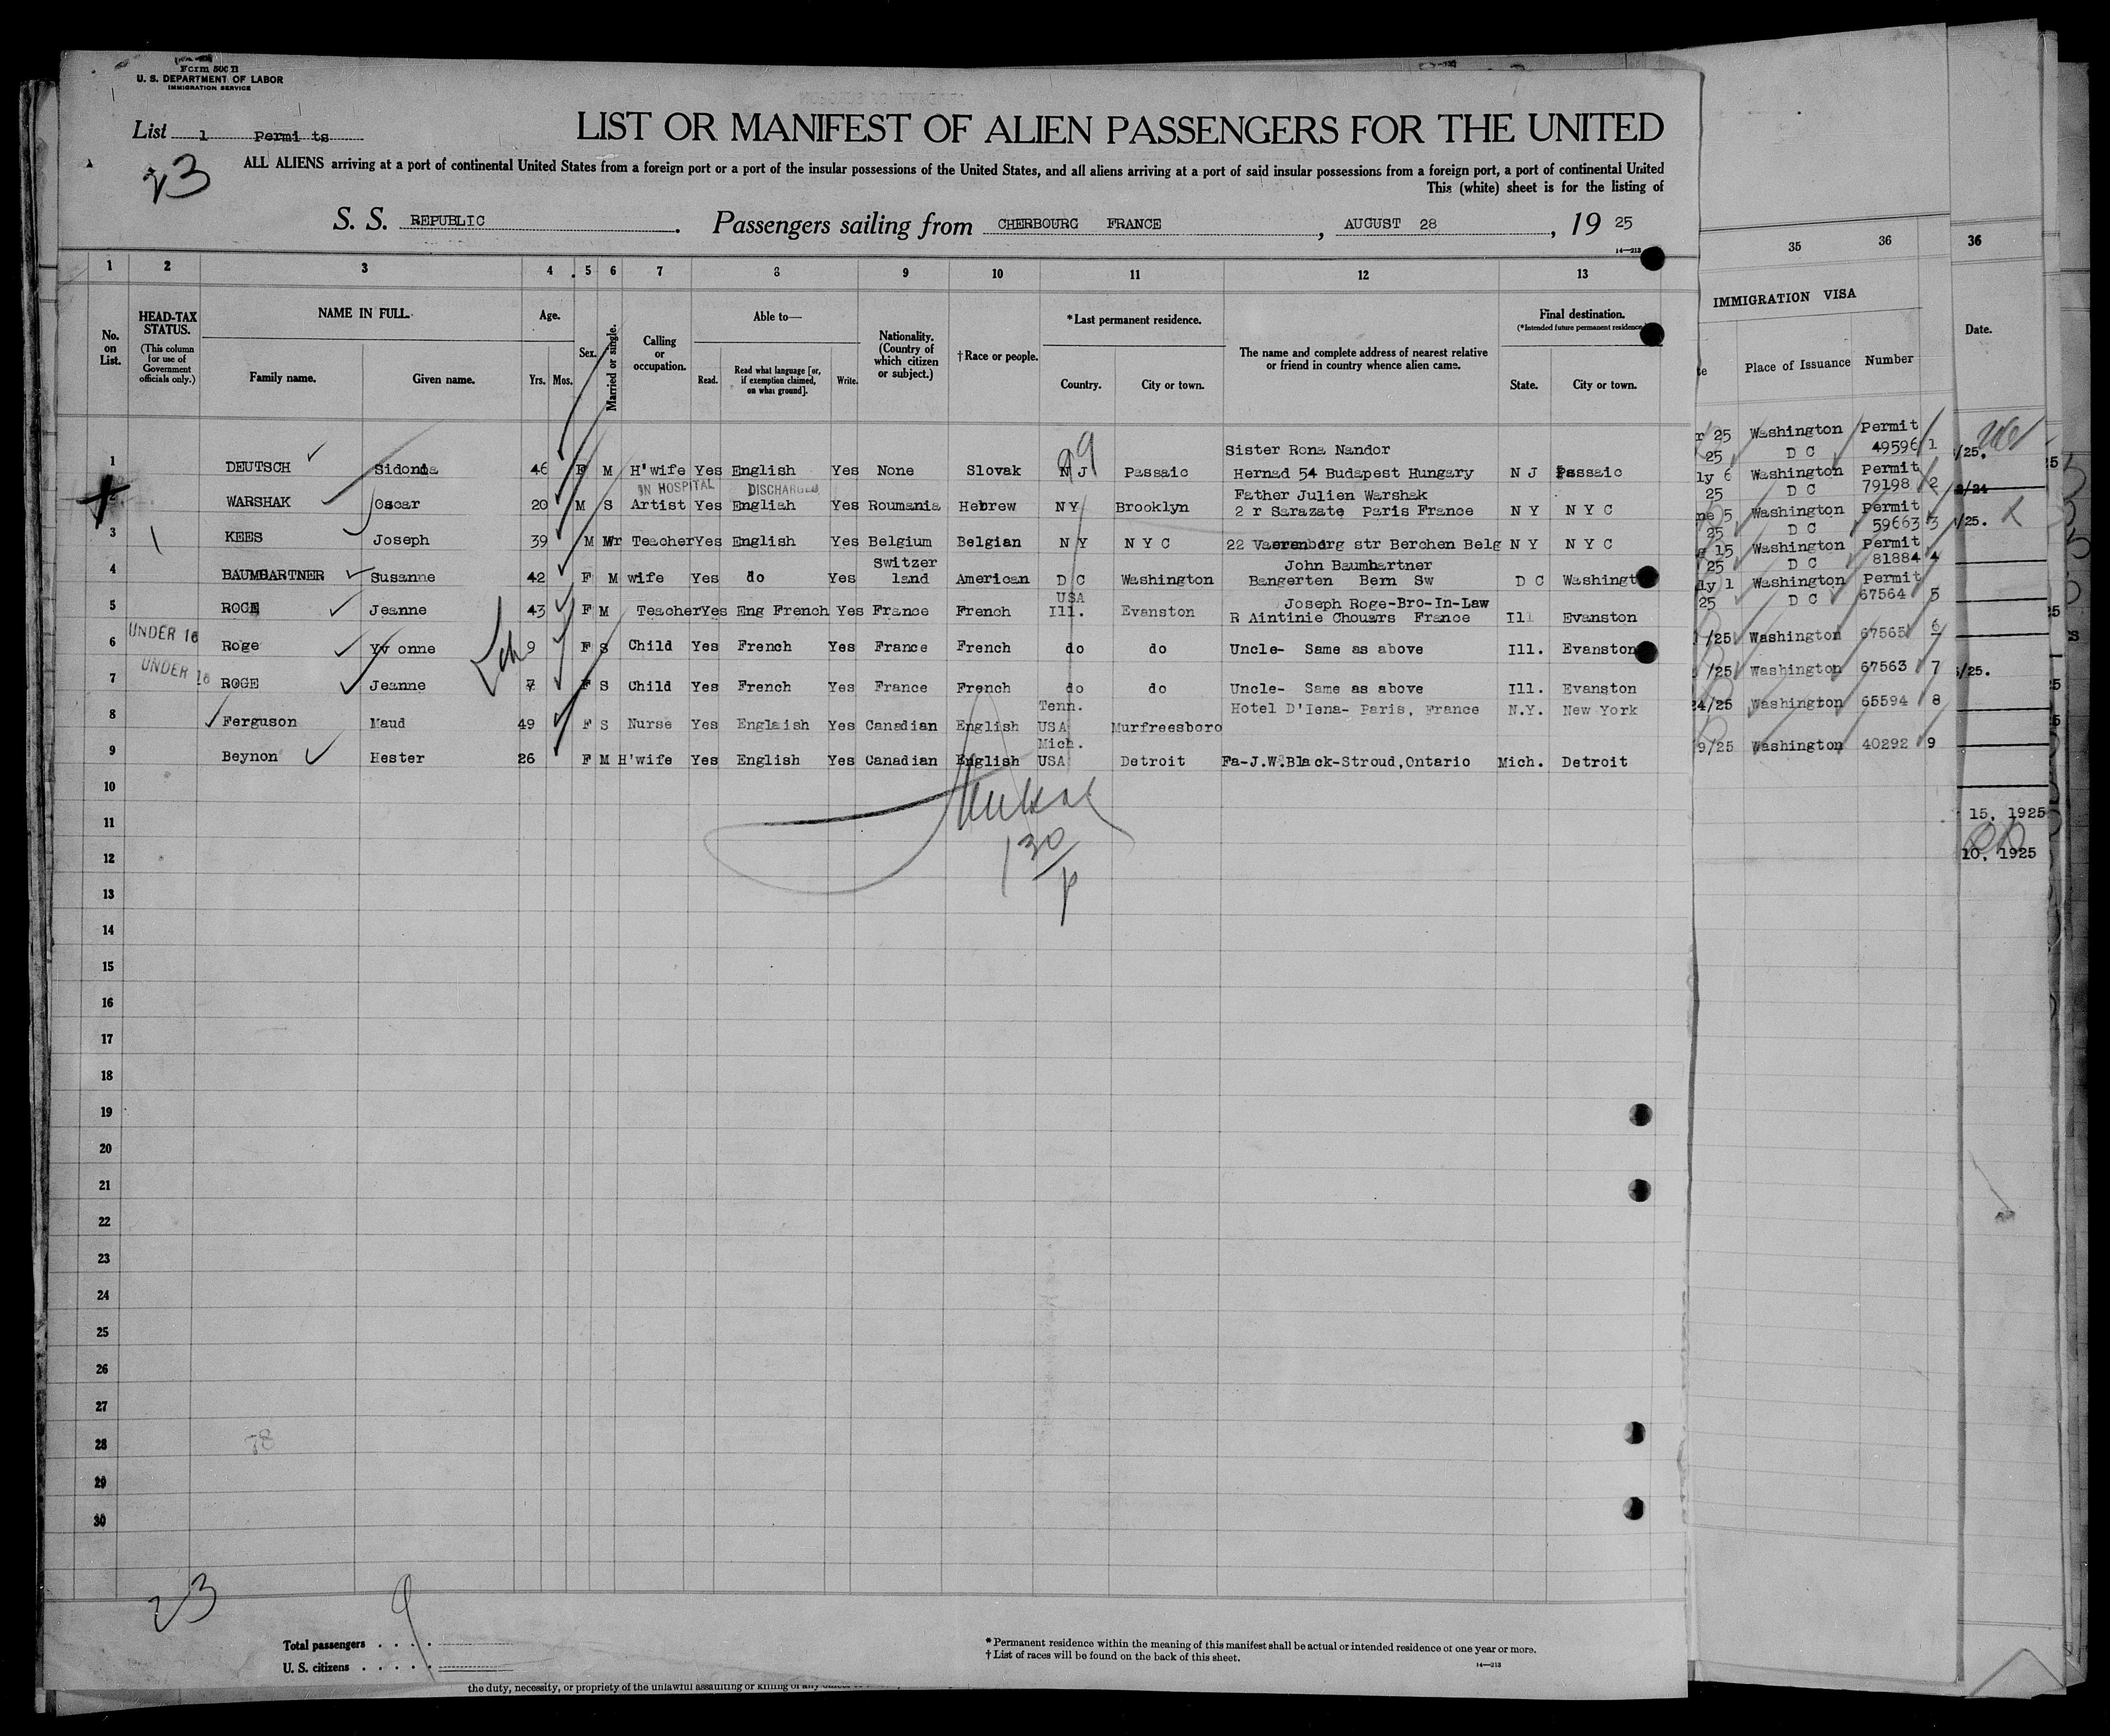 Form 500 B
U. S. DEPARTMENT OF LABOR
IMMIGRATION SERVICE
List 1 Permits
23
LIST OR MANIFEST OF ALIEN PASSENGERS FOR THE UNITED
ALL ALIENS arriving at a port of continental United States from a foreign port or a port of the insular possessions of the United States, and all aliens arriving at a port of said insular possessions from a foreign port, a port of continental United
This (white) sheet is for the listing of
S. S. REPUBLIC. Passengers sailing from CHERBOURG FRANCE, AUGUST 28, 19 25
14—213
1 2 3 4 5 6 7 8 9 10 11 12 13
No. on List.
HEAD-TAX STATUS.
(This column for use of Government officials only.)
NAME IN FULL.
Family name. Given name.
Age.
Yrs. Mos.
Sex.
Married or single.
Calling or occupation.
Able to—
Read. Read what language [or, if exemption claimed, on what ground]. Write.
Nationality. (Country of which citizen or subject.)
†Race or people.
*Last permanent residence.
Country. City or town.
The name and complete address of nearest relative or friend in country whence alien came.
Final destination.
(*Intended future permanent residence.)
State. City or town.
35 36
IMMIGRATION VISA
Place of Issuance Number
36
Date.
99
Sister Rona Nandor
1 DEUTSCH Sidonia 46 F M H'wife Yes English Yes None Slovak N J Passaic Hernad 54 Budapest Hungary N J Passaic
IN HOSPITAL DISCHARGED
Father Julien Warshak
2 WARSHAK Oscar 20 M S Artist Yes English Yes Roumania Hebrew N Y Brooklyn 2 r Sarazate Paris France N Y N Y C
3 KEES Joseph 39 M Teacher Yes English Yes Belgium Belgian N Y N Y C 22 str Berchen Belg N Y N Y C
Switzer John Baumhartner
4 BAUMGARTNER Susanne 42 F M wife Yes do Yes land American D C Washington Bangerten Bern Sw D C Washingt
USA Joseph Roge-Bro-In-Law
5 ROGE Jeanne 43 F M Teacher Yes Eng French Yes France French Ill. Evanston R Aintinie Chouars France Ill Evanston
UNDER 16
6 Roge Yv onne 9 F S Child Yes French Yes France French do do Uncle- Same as above Ill. Evanston
UNDER 16
7 ROGE Jeanne 7 F S Child Yes French Yes France French do do Uncle- Same as above Ill. Evanston
Tenn. Hotel D'Iena- Paris, France N.Y. New York
8 Ferguson Maud 49 F S Nurse Yes Englaish Yes Canadian English USA Murfreesboro
Mich.
9 Beynon Hester 26 F M H'wife Yes English Yes Canadian English USA Detroit Fa-J.W.Black-Stroud,Ontario Mich. Detroit
10
11
12
13
14
15
16
17
18
19
20
21
22
23
24
25
26
27
28
29
30
130
p
r 25 Washington Permit
25 D C 49596 1
ly 6 Washington Permit
25 D C 79198 2
ne 5 Washington Permit
25 D C 59663 3
15 Washington Permit
25 D C 81884 4
ly 1 Washington Permit
25 D C 67564 5
/25 Washington 67565 6
/25 Washington 67563 7
24/25 Washington 65594 8
9/25 Washington 40292 9
/25.
/24
/25.
/25.
15, 1925
10, 1925
78
23
9
Total passengers
U. S. citizens
*Permanent residence within the meaning of this manifest shall be actual or intended residence of one year or more.
†List of races will be found on the back of this sheet.
14—213
the duty, necessity, or propriety of the unlawful assaulting or killing of any